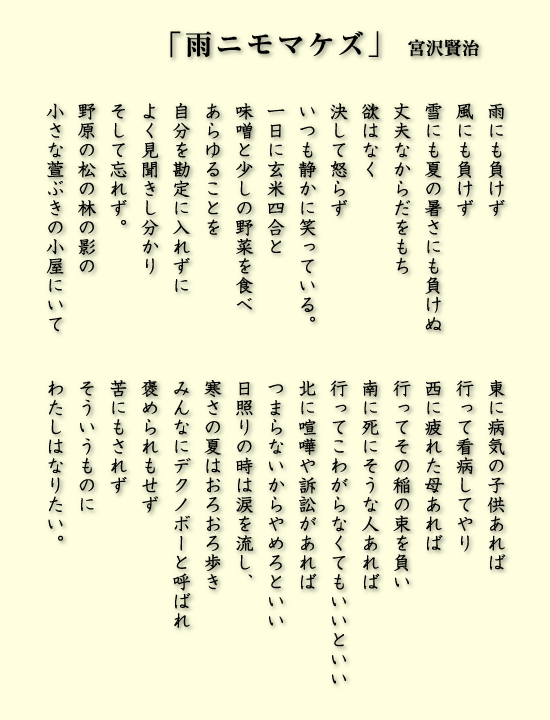 「雨ニモマケズ」 宮沢賢治
雨にも負けず
風にも負けず
雪にも夏の暑さにも負けぬ
丈夫なからだをもち
欲はなく
決して怒らず
いつも静かに笑っている。
一日に玄米四合と
味噌と少しの野菜を食べ
あらゆることを
自分を勘定に入れずに
よく見聞きし分かり
そして忘れず。
野原の松の林の影の
小さな萱ぶきの小屋にいて
東に病気の子供あれば
行って看病してやり
西に疲れた母あれば
行ってその稲の束を負い
南に死にそうな人あれば
行ってこわがらなくてもいいといい
北に喧嘩や訴訟があれば
つまらないからやめろといい
日照りの時は涙を流し、
寒さの夏はおろおろ歩き
みんなにデクノボーと呼ばれ
褒められもせず
苦にもされず
そういうものに
わたしはなりたい。